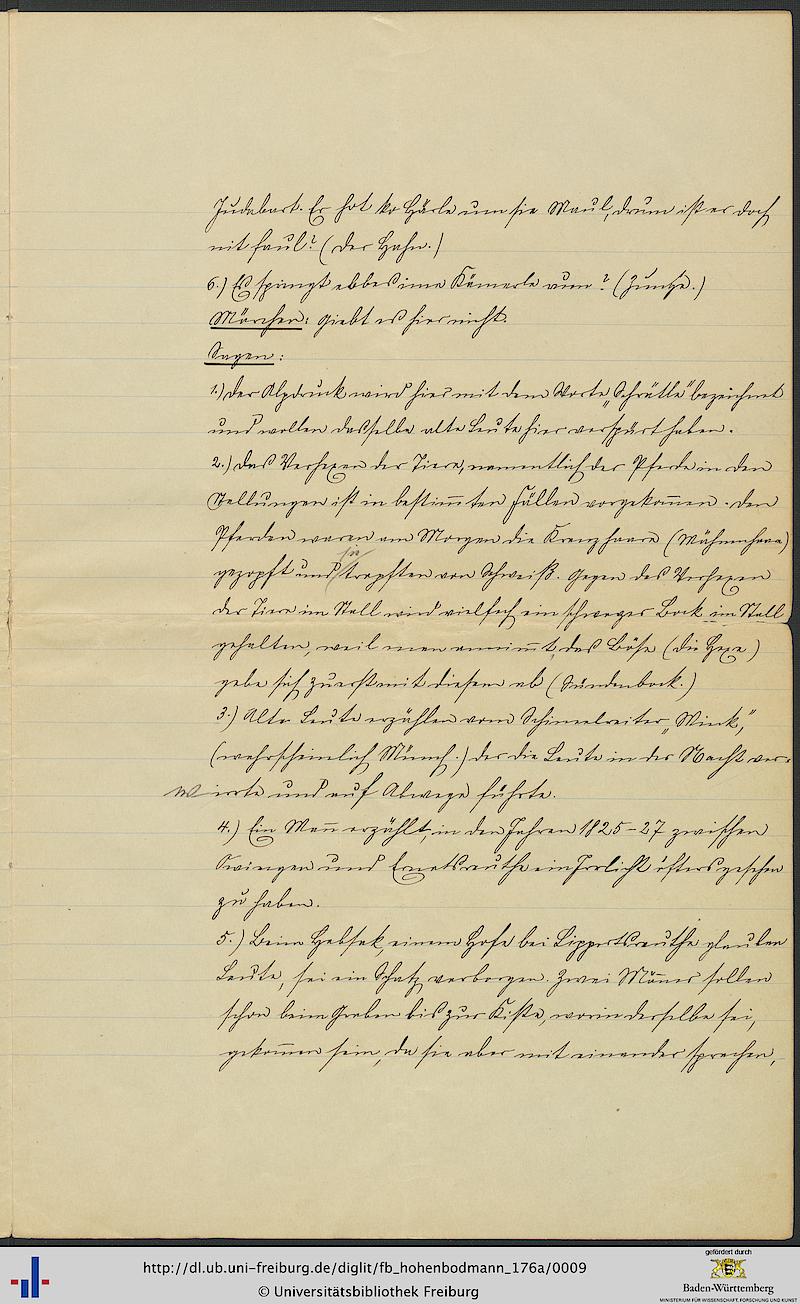 Judabart. Er hot ko Härle um sie Maul, drum ist er doch
nit faul? (Der Hahn.)
6.) Es springt ebbes imme Kämerle rum? (Zunge.)
Märchen: Giebt es hier nicht.
Sagen:
1.) Der Alpdruck wird hier mit dem Worte „Schrättle" bezeichnet
und wollen dasselbe alte Leute hier verspürt haben.
2.) Das Verhexen der Tiere, namentlich der Pferde in den
Stallungen ist in bestim̄ten Fällen vorgekom̄en. Den
Pferden waren am Morgen die Kreuzhaare (Mähnenhaare)
gezopft und sie tropften von Schweiß. Gegen das Verhexen
der Tiere im Stall wird vielfach ein schwarzer Bock im Stall
gehalten, weil man annim̄t, das Böse (die Hexe)
gebe sich zuerst mit diesem ab (Sündenbock.)
3.) Alte Leute erzählen vom Schimmelreiter „Mink",
(wahrscheinlich Münch.) der die Leute in der Nacht ver-
wirrte und auf Abwege führte.
4.) Ein Man̄ erzählt, in den Jahren 1825-27 zwischen
Owingen und Ernatsreuthe ein Irrlicht öfters gesehen
zu haben.
5.) Beim Hebsack, einem Hofe bei Lippertsreuthe glauben
Leute, sei ein Schatz verborgen. Zwei Män̄er sollen
schon beim Graben bis zur Kiste, worin derselbe sei,
gekom̄en sein, da sie aber mit einander sprachen,
http://dl.ub.uni-freiburg.de/diglit/fb_hohenbodmann_176a/0009
© Universitätsbibliothek Freiburg
gefördert durch
Baden-Württemberg
MINISTERIUM FÜR WISSENSCHAFT, FORSCHUNG UND KUNST